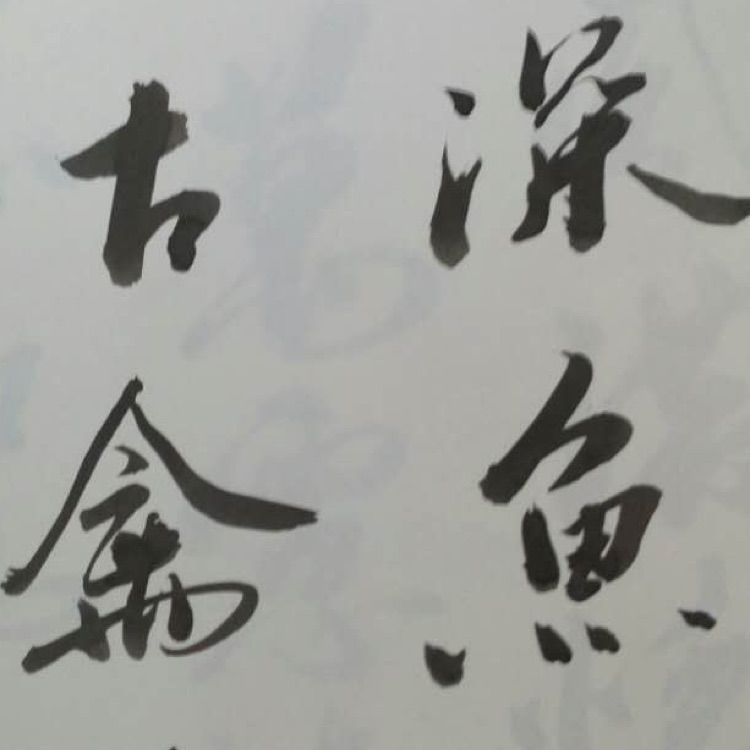 深魚
古禽